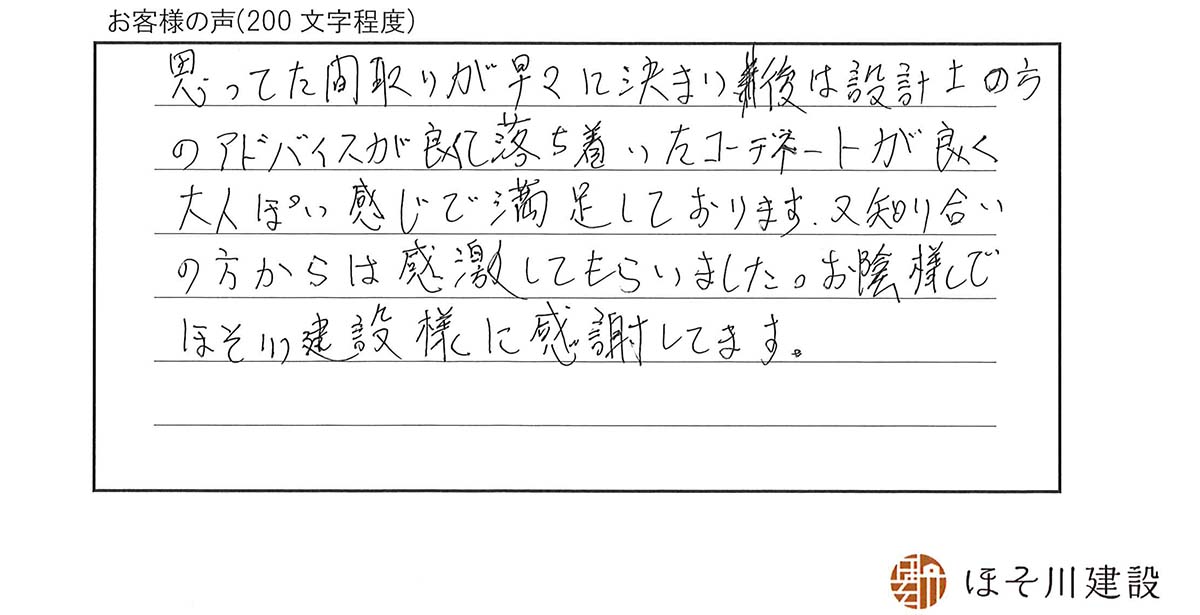 お客様の声(200 文字程度)
思ってた間取りが早々に決まり後は設計士の方
のアドバイスが良くて落ち着いたコーデネートが良く
大人ぽい感じで満足しております、又知り合い
の方からは感激してもらいました。お陰様で
ほそ川建設様に感謝してます。
ほそ川建設